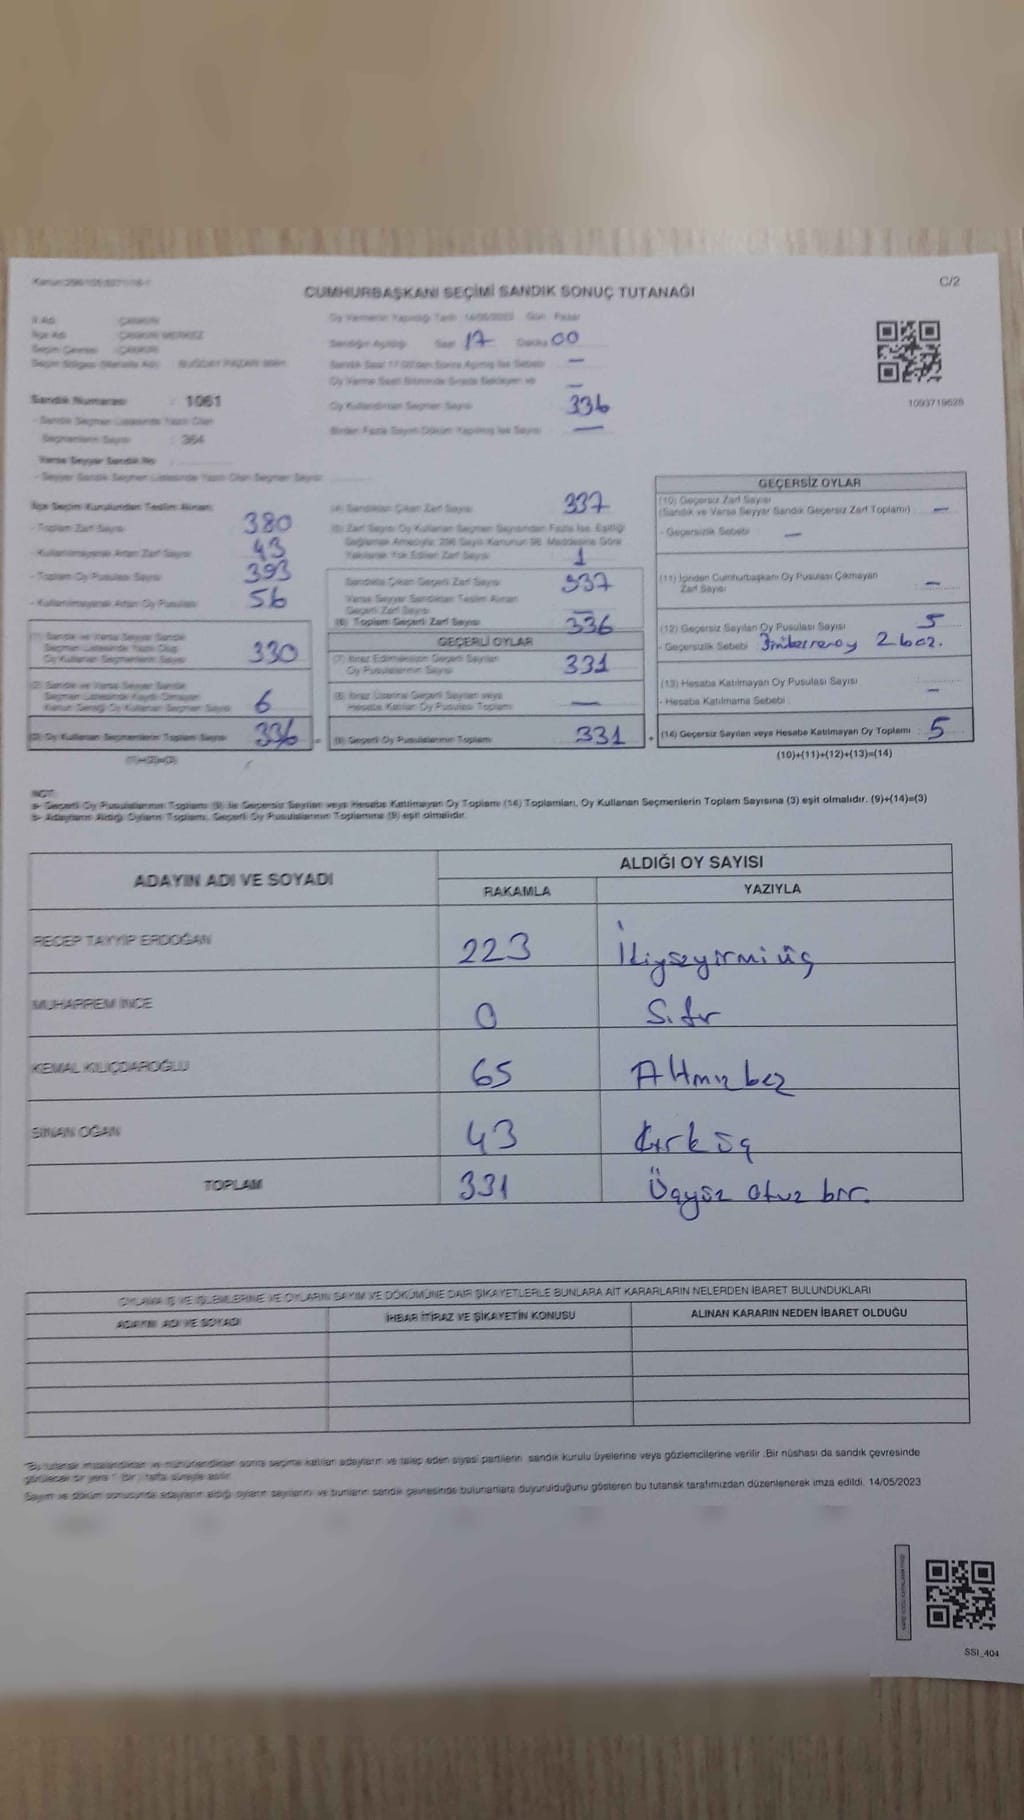 Kanun:298/105;6271/16-1
C/2
CUMHURBAŞKANI SEÇİMİ SANDIK SONUÇ TUTANAĞI
İl Adı : ÇANKIRI
İlçe Adı : ÇANKIRI MERKEZ
Seçim Çevresi : ÇANKIRI
Seçim Bölgesi (Mahalle Adı) : BUĞDAY PAZARI MAH.
Sandık Numarası : 1061
- Sandık Seçmen Listesinde Yazılı Olan
Seçmenlerin Sayısı : 364
Varsa Seyyar Sandık No :
- Seyyar Sandık Seçmen Listesinde Yazılı Olan Seçmen Sayısı:
Oy Vermenin Yapıldığı Tarih : 14/05/2023 Gün : Pazar
Sandığın Açıldığı Saat 17 Dakika 00
Sandık Saat 17.00'den Sonra Açılmış İse Sebebi —
Oy Verme Saati Bitiminde Sırada Bekleyen ve —
Oy Kullandırılan Seçmen Sayısı 336
Birden Fazla Sayım Döküm Yapılmış İse Sayısı —
1093719628
İlçe Seçim Kurulundan Teslim Alınan:
- Toplam Zarf Sayısı 380
- Kullanılmayarak Artan Zarf Sayısı 43
- Toplam Oy Pusulası Sayısı 393
- Kullanılmayarak Artan Oy Pusulası 56
(1) Sandık ve Varsa Seyyar Sandık
Seçmen Listesinde Yazılı Olup
Oy Kullanan Seçmenlerin Sayısı 330
(2) Sandık ve Varsa Seyyar Sandık
Seçmen Listesinde Kaydı Olmayan
Kanun Gereği Oy Kullanan Seçmen Sayısı 6
(3) Oy Kullanan Seçmenlerin Toplam Sayısı 336
(1)+(2)=(3)
(4) Sandıktan Çıkan Zarf Sayısı 337
(5) Zarf Sayısı Oy Kullanan Seçmen Sayısından Fazla İse, Eşitliği
Sağlamak Amacıyla; 298 Sayılı Kanunun 98. Maddesine Göre
Yakılarak Yok Edilen Zarf Sayısı 1
Sandıkta Çıkan Geçerli Zarf Sayısı 337
Varsa Seyyar Sandıktan Teslim Alınan
Geçerli Zarf Sayısı —
(6) Toplam Geçerli Zarf Sayısı 336
GEÇERLİ OYLAR
(7) İtiraz Edilmeksizin Geçerli Sayılan
Oy Pusulalarının Sayısı 331
(8) İtiraz Üzerine Geçerli Sayılan veya
Hesaba Katılan Oy Pusulası Toplamı —
(9) Geçerli Oy Pusulalarının Toplamı 331
GEÇERSİZ OYLAR
(10) Geçersiz Zarf Sayısı
(Sandık ve Varsa Seyyar Sandık Geçersiz Zarf Toplamı) —
- Geçersizlik Sebebi —
(11) İçinden Cumhurbaşkanı Oy Pusulası Çıkmayan
Zarf Sayısı —
(12) Geçersiz Sayılan Oy Pusulası Sayısı 5
- Geçersizlik Sebebi 2 boz.
(13) Hesaba Katılmayan Oy Pusulası Sayısı
- Hesaba Katılmama Sebebi : —
(14) Geçersiz Sayılan veya Hesaba Katılmayan Oy Toplamı : 5
(10)+(11)+(12)+(13)=(14)
NOT:
a- Geçerli Oy Pusulalarının Toplamı (9) ile Geçersiz Sayılan veya Hesaba Katılmayan Oy Toplamı (14) Toplamları, Oy Kullanan Seçmenlerin Toplam Sayısına (3) eşit olmalıdır. (9)+(14)=(3)
b- Adayların Aldığı Oyların Toplamı, Geçerli Oy Pusulalarının Toplamına (9) eşit olmalıdır.
ADAYIN ADI VE SOYADI
ALDIĞI OY SAYISI
RAKAMLA YAZIYLA
RECEP TAYYİP ERDOĞAN 223 İkiyüzyirmi üç
MUHARREM İNCE 0 Sıfır
KEMAL KILIÇDAROĞLU 65 Altmış beş
SİNAN OĞAN 43 Kırk üç
TOPLAM 331 Üçyüz otuz bir.
OYLAMA İŞ VE İŞLEMLERİNE VE OYLARIN SAYIM VE DÖKÜMÜNE DAİR ŞİKAYETLERLE BUNLARA AİT KARARLARIN NELERDEN İBARET BULUNDUKLARI
ADAYIN ADI VE SOYADI İHBAR İTİRAZ VE ŞİKAYETİN KONUSU ALINAN KARARIN NEDEN İBARET OLDUĞU
"Bu tutanak imzalandıktan ve mühürlendikten sonra seçime katılan adayların ve talep eden siyasi partilerin sandık kurulu üyelerine veya gözlemcilerine verilir. Bir nüshası da sandık çevresinde
görülecek bir yere " (bir) hafta süreyle asılır.
Sayım ve döküm sonucunda adayların aldığı oyların sayılarını ve bunların sandık çevresinde bulunanlara duyurulduğunu gösteren bu tutanak tarafımızdan düzenlenerek imza edildi. 14/05/2023
SSI_404